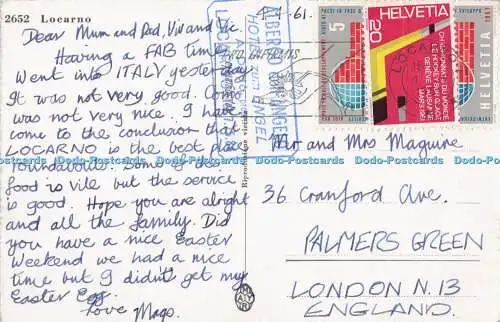 2652 Locarno
Dear Mum and Dad, Viv and Vic.
Having a FAB time
Went into ITALY yesterday
It was not very good. Como
was not very nice. I have
come to the conclusion that
LOCARNO is the best place
roundabouts. Some of the
food is vile but the service
is good. Hope you are alright
and all the family. Did
you have a nice Easter
Weekend we had a nice
time but I didn't get my
Easter Egg.
Love Mags.
ALBERGO DELL'ANGELO
HOTEL zum ENGEL
LOCARNO
61.
5
20
HELVETIA
CHAMPIONNATS DU MONDE
DE HOCKEY SUR GLACE
GENÈVE LAUSANNE
MARS 1961
1961
Mr and Mrs Maguire
36 Cranford Ave.
PALMERS GREEN
LONDON N. 13
ENGLAND.
Dodo-Postcards Dodo-Postcards Dodo-Postcards Dodo-Postcards Dodo-Postcards Dodo-Postcards